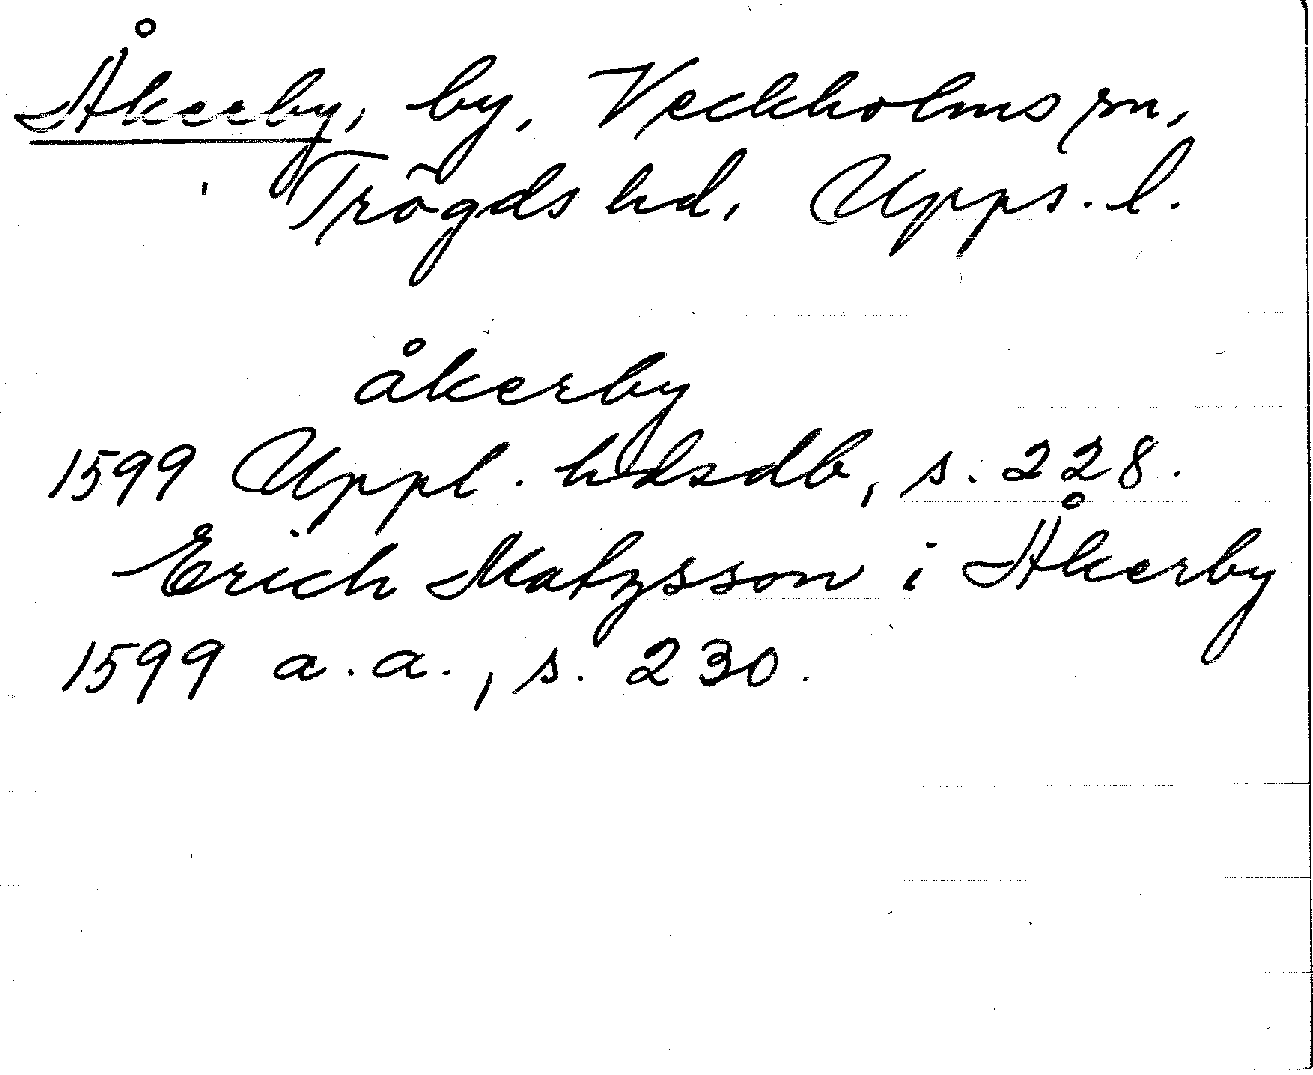 Åkerby, by, Veckholms sn,
Trögds hd, Upps. l.
åkerby
1599 Uppl. hdsdb, s. 228.
Erich Matzsson i Åkerby
1599 a.a., s. 230.